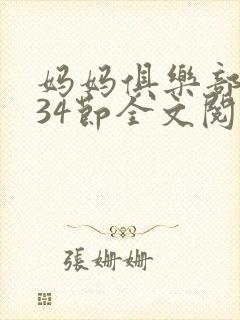 妈妈俱樂部
34節全文閱
張姍姍